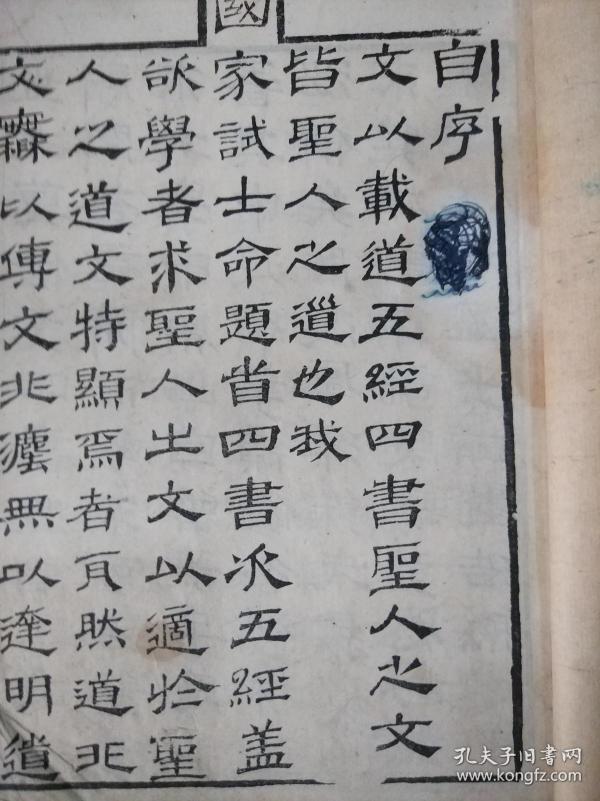 自序
文以載道五經四書聖人之文
皆聖人之道也我
國
家試士命題首四書次五經蓋
欲學者求聖人之文以適於聖
人之道文特顯焉者耳然道非
文無以傳文非無以達明道
孔夫子旧书网
www.kongfz.com